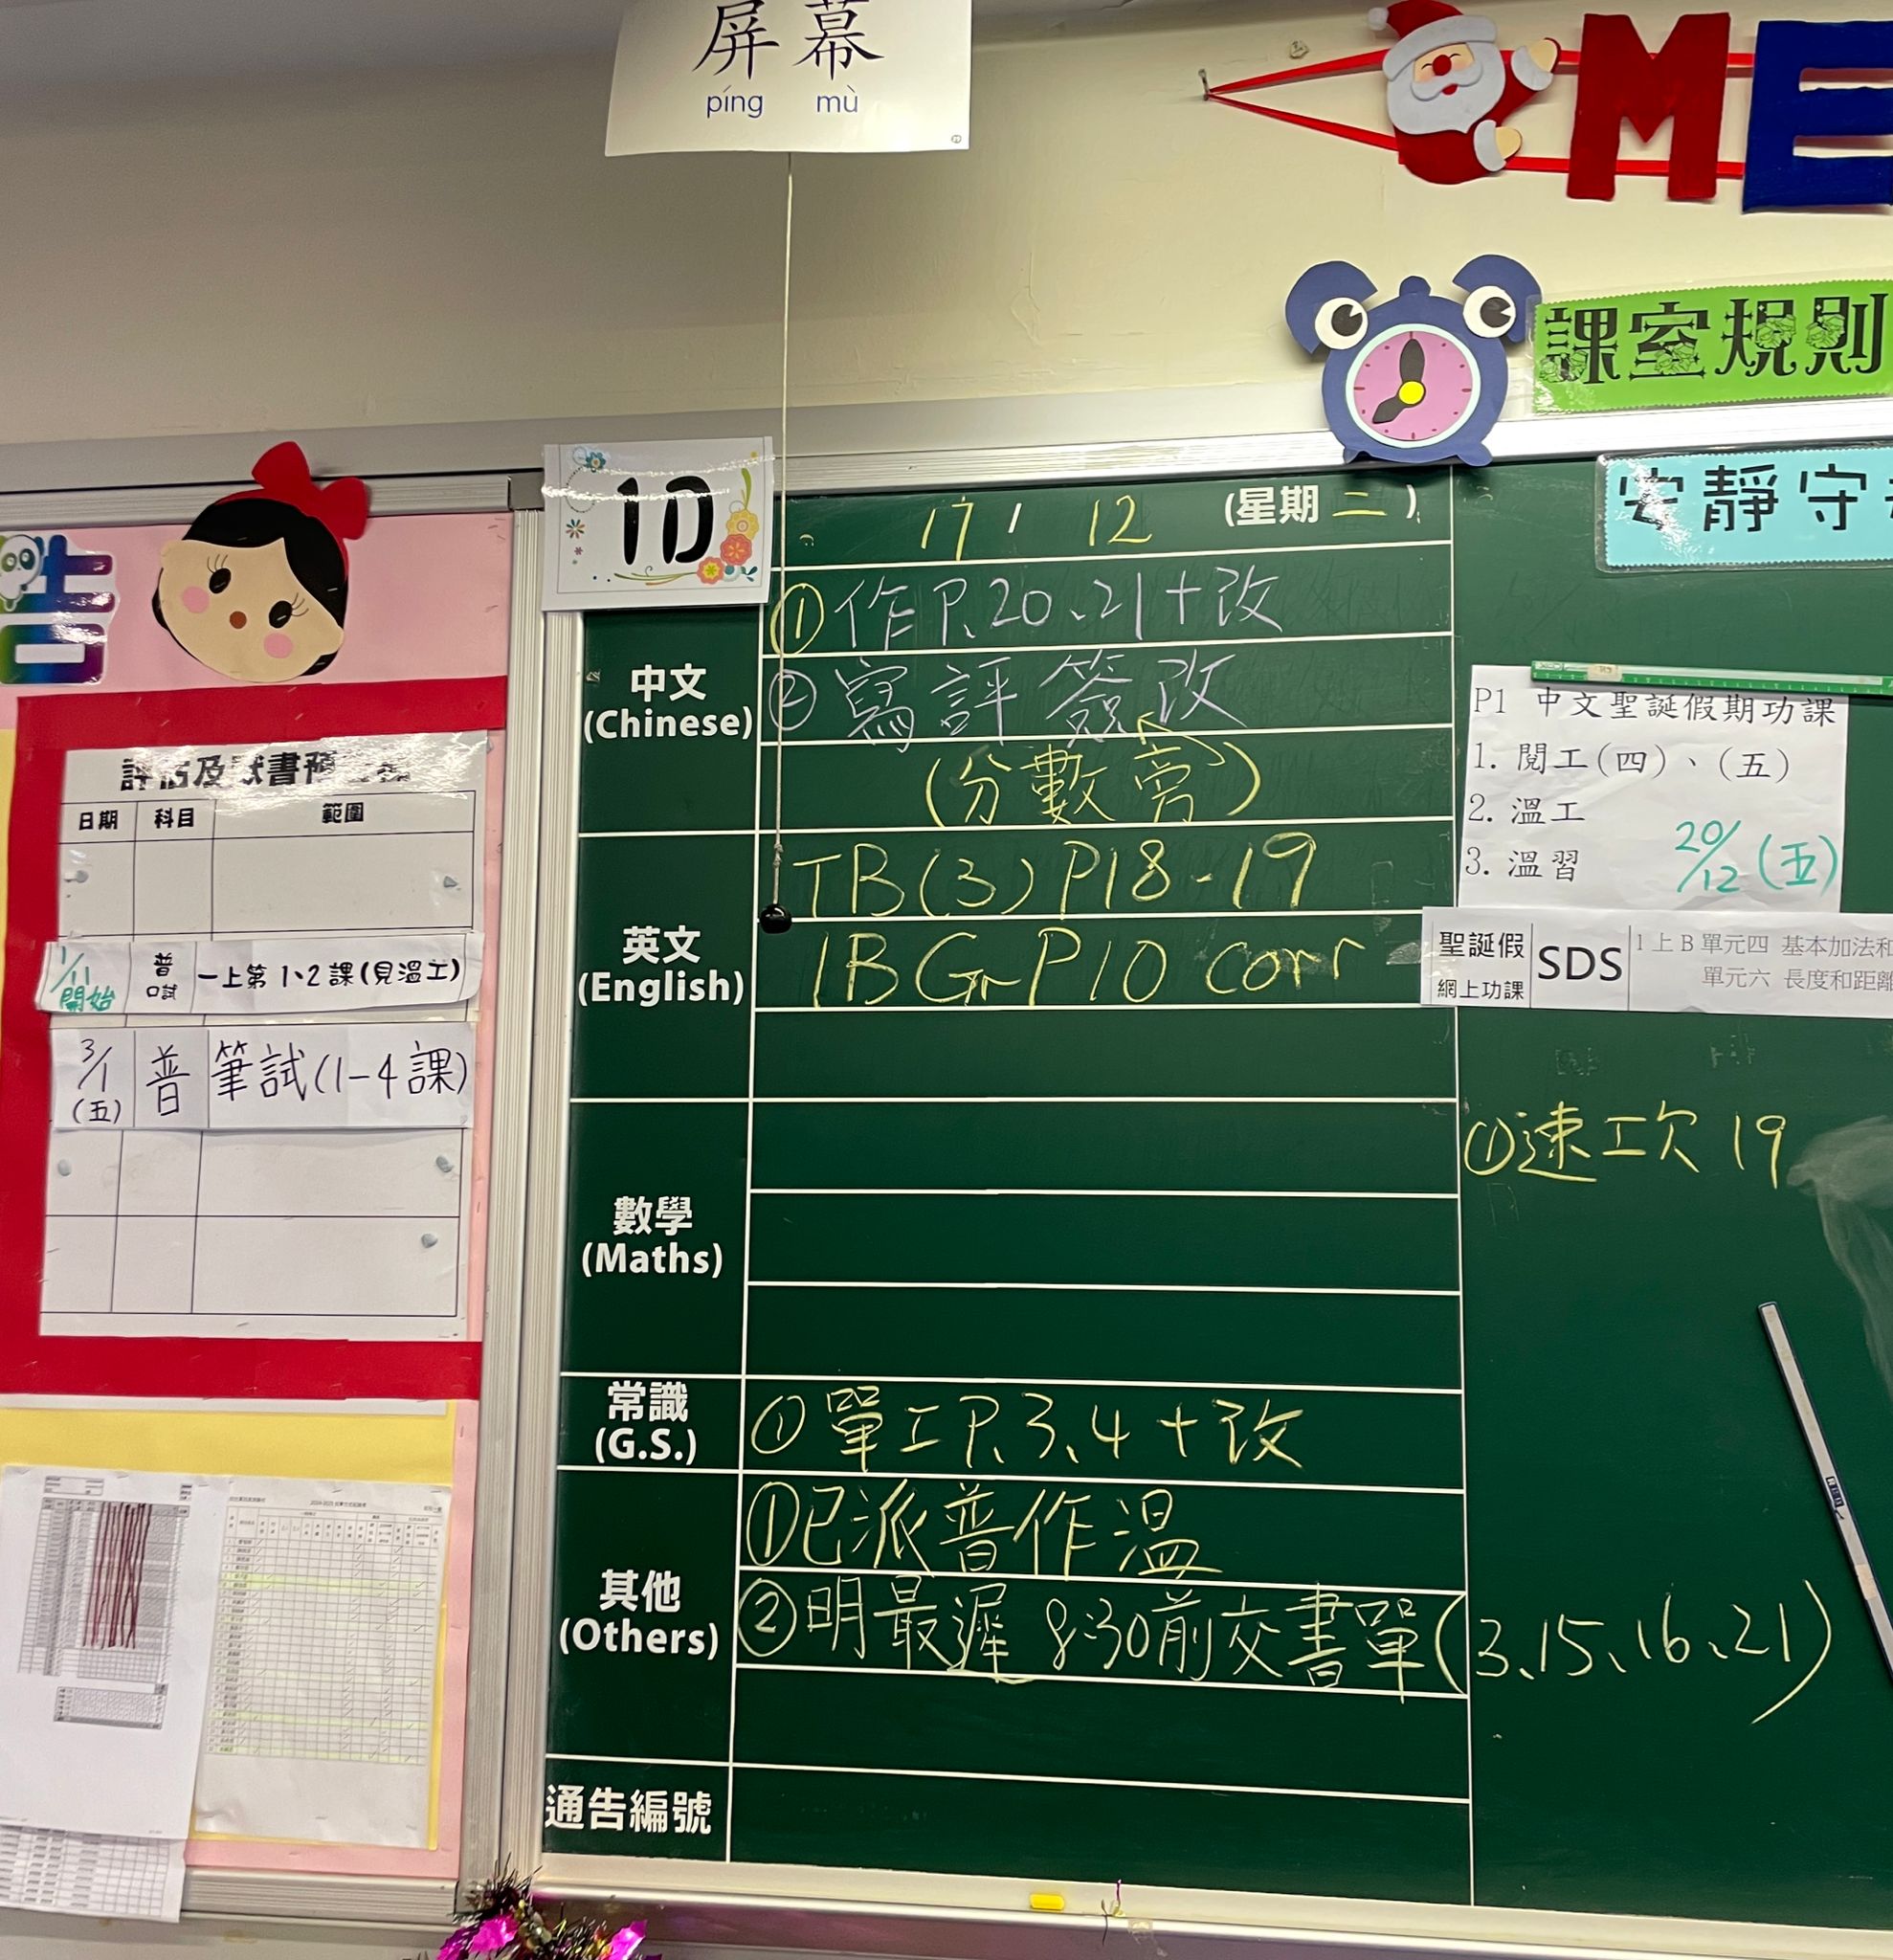 屏幕
píng mù
ME
課室規則
安靜守
告
1D
17 / 12 (星期二)
中文
(Chinese)
①作P.20、21+改
②寫評簽改
(分數旁)
英文
(English)
TB(3) P18-19
GrP10 corr
數學
(Maths)
常識
(G.S.)
①單工P.3、4+改
其他
(Others)
①已派普作溫
②明最遲 8:30前交書單(3、15、16、21)
通告編號
P1 中文聖誕假期功課
1. 閱工(四)、(五)
2. 溫工
3. 溫習
20/12(五)
聖誕假
網上功課
SDS
1上B單元四 基本加法和
單元六 長度和距離
①速工次19
日期 科目 範圍
1/11開始 普口試 一上第1、2課(見溫工)
3/1(五) 普 筆試(1-4課)